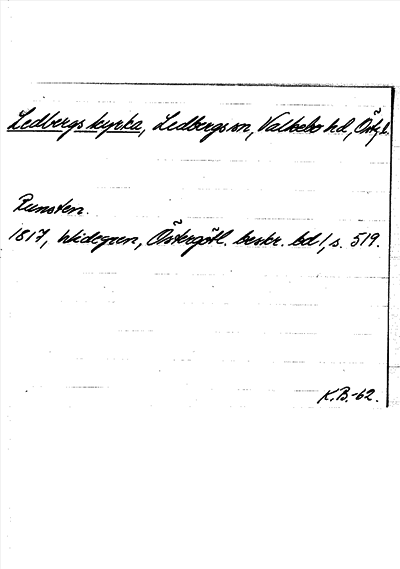 Ledbergs kyrka, Ledbergs sn, Valkebo hd, Östg.
Runsten.
1817, Widegren, Östergötl. beskr. bd 1, s. 519.
K.B.-62.